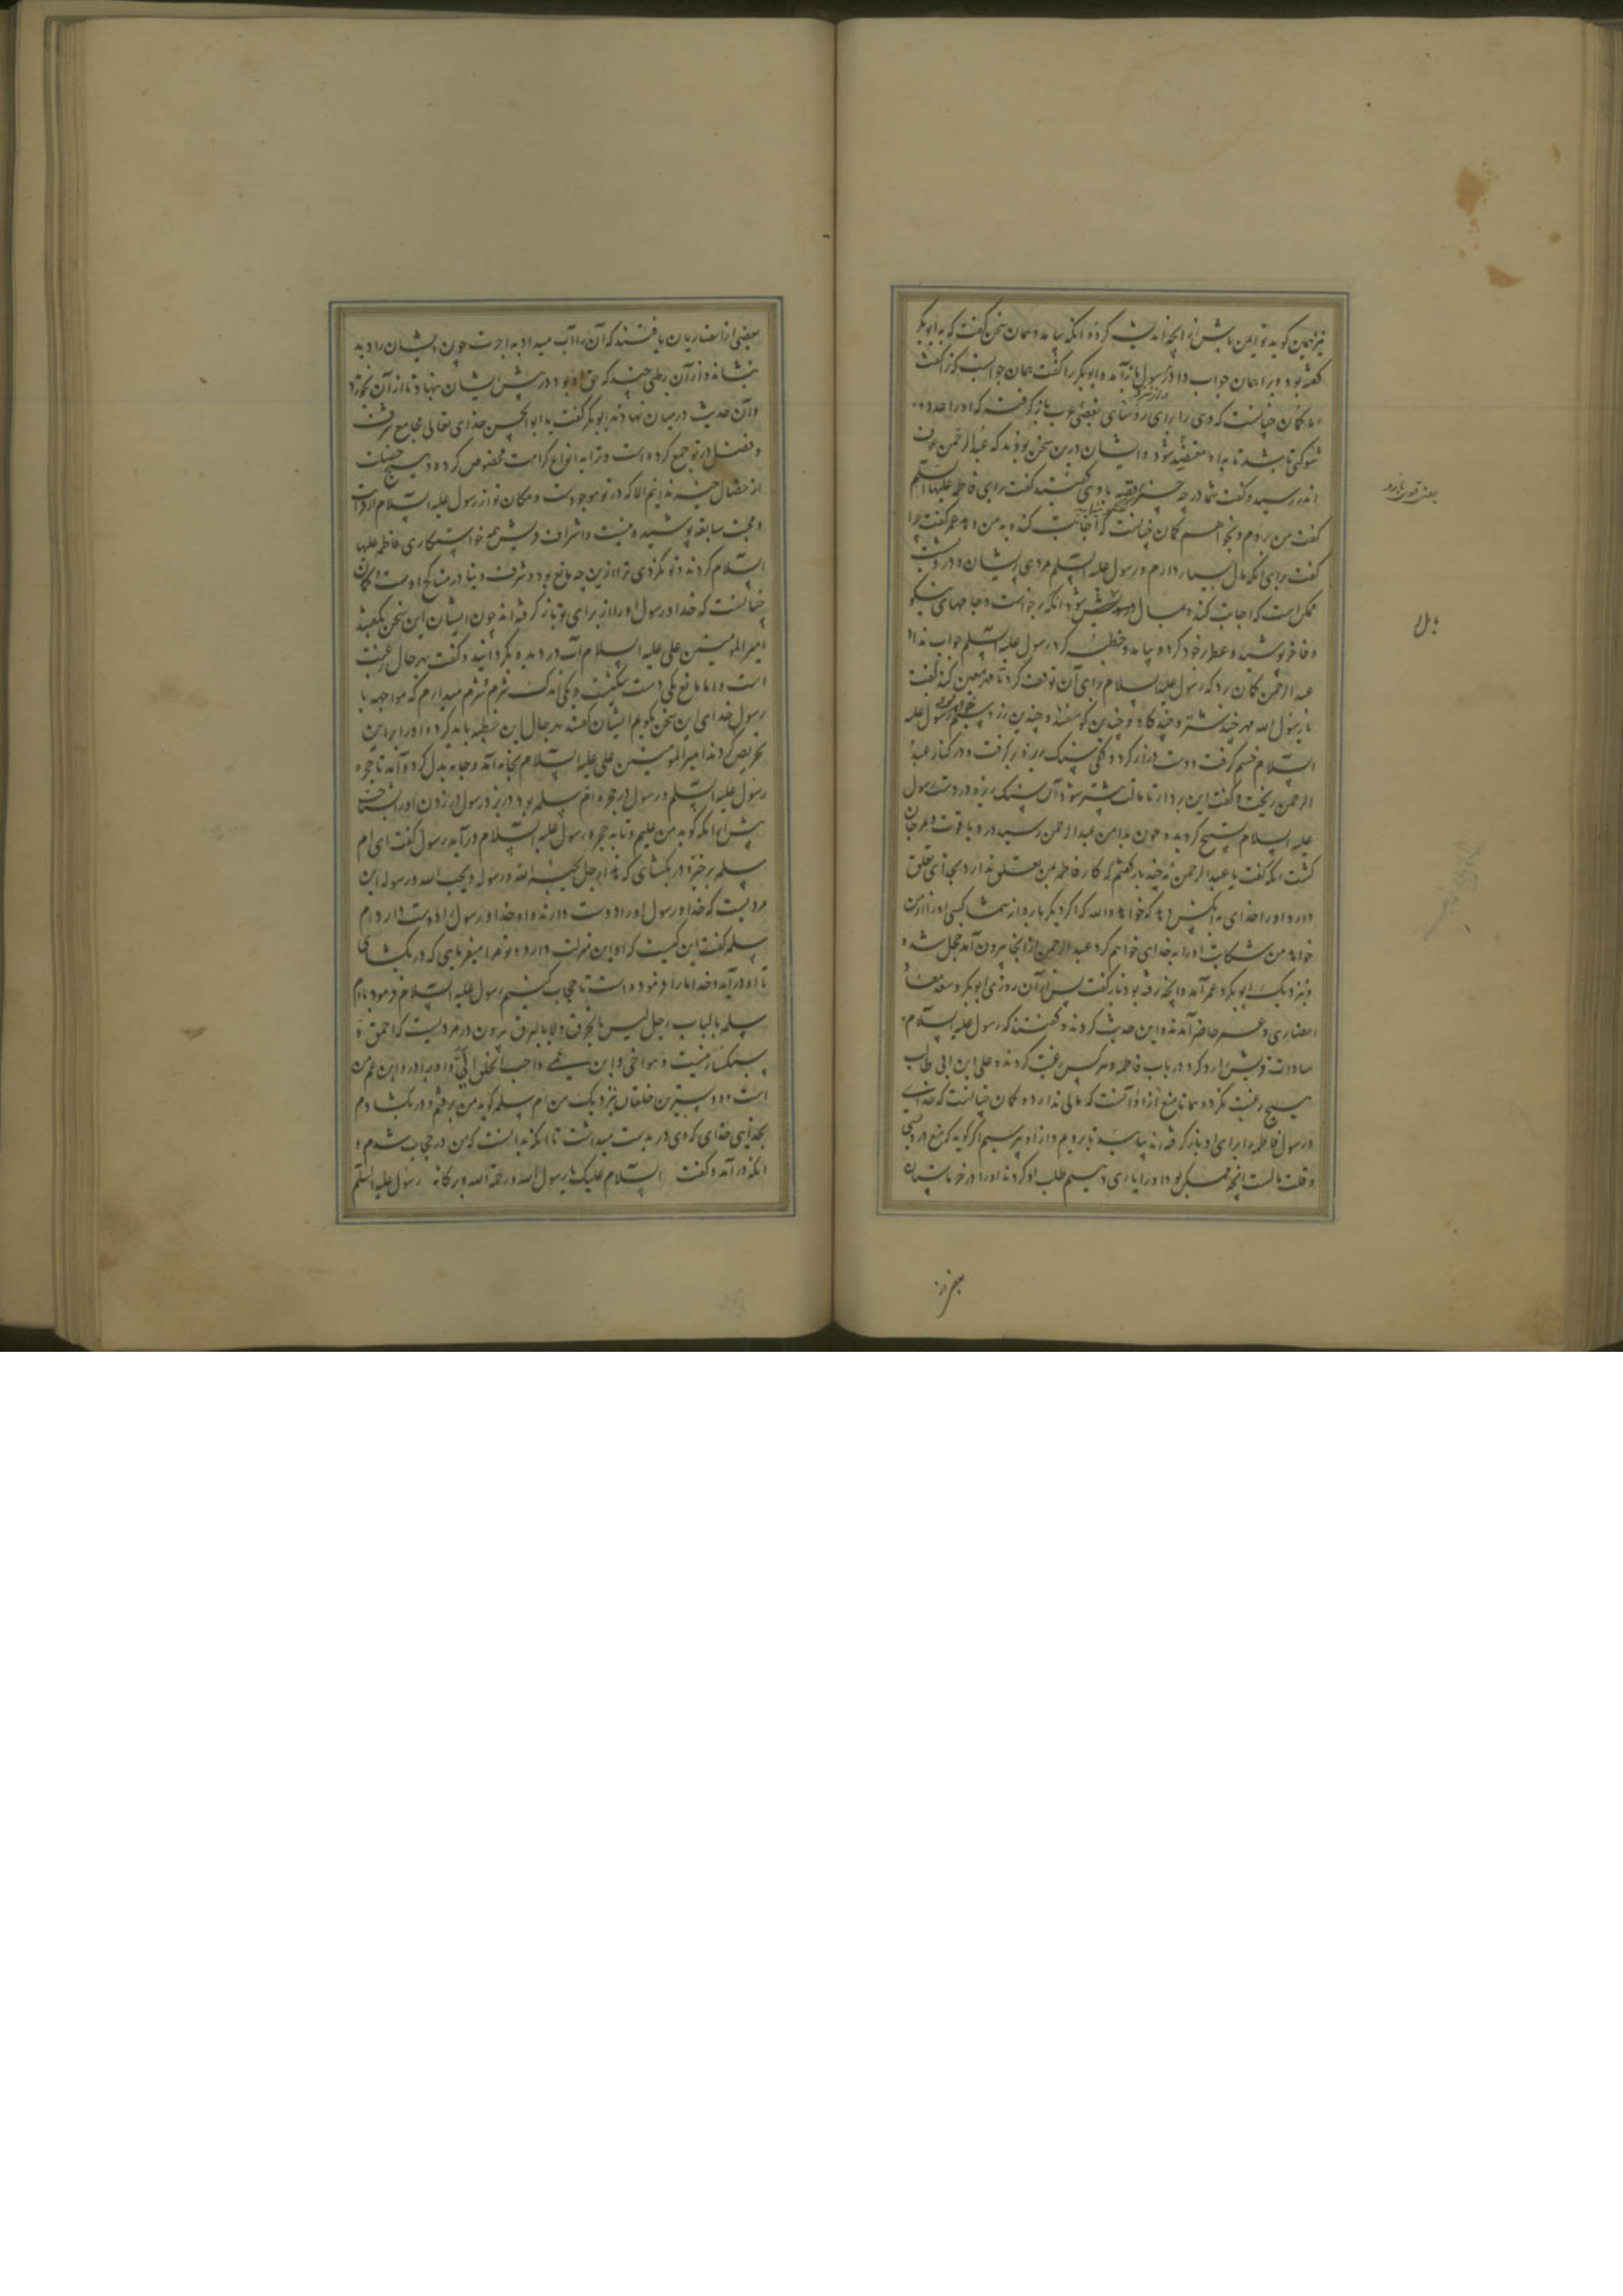 نیز همین گوید تو ایمن باش از آنچه اندیشه کرده انگه بیامد و همان سخن گفت که ابوبکر
گفته بود ویرا همان جواب داد رسول باز آمد و ابوبکر را گفت همان جوابست که ترا گفت
گمان چنانست که وی را برای رؤسای بعضی عرب باز گرفته که او را عدد و
شوکتی باشد تا به او معتضد شود و ایشان درین سخن بودند که عبدالرحمن عوف
اندر رسید و گفت شما در چه چیزید قصه با وی گفتند گفت برای فاطمه علیها السلم
گفت من بروم و بخواهم گمان چنانست که اجابت کند و به من دهد عمر گفت چرا
گفت برای انکه مال بسیار دارم و رسول علیه السلم مردی پریشان و درویش
ممکن است که اجابت کند و بمال شود انگه برخواست و جامهای نیکو
و فاخر پوشید و عطر بر خود کرد و بیامد و خطبه کرد رسول علیه السلم جواب نداد
عبد الرحمن گمان برد که رسول علیه السلام برای آن توقف کرد تا مهر معین کند گفت
یا رسول الله مهر چند شتر و چند گاو و چندین گوسفند و چندین زر و سیم رسول علیه
السلام خشم گرفت و دست دراز کرد و کفی سنگ ریزه بر گرفت و در کنار عبد
الرحمن ریخت و گفت این بردار تا مالت بیشتر شود آن سنگ ریزه در دست رسول
علیه السلام تسبیح کردند و چون بدامن عبد الرحمن رسید در و یاقوت و مرجان
گشت انگه گفت یا عبد الرحمن نه چند بار گفتم که کار فاطمه بمن تعلق ندارد بخدای تعلق
دارد او را خدای به انکس دهد که خواهد والله که اگر دیگر بار و از شما کسی او را از من
خواهد من شکایت او را به خدای خواهم کرد عبد الرحمن از انجا بیرون آمد خجل شده
و نزدیک ابوبکر و عمر آمد و انچه رفته بود باز گفت پس از آن روزی ابوبکر و سعد معاذ
انصاری و عمر حاضر آمدند و این حدیث کردند و گفتند که رسول علیه السلام
سادات قریش را رد کرد در باب فاطمه و هر کس رغبت کردند و علی ابن ابی طالب
هیچ رغبت نکرد و همانا منع از او آنست که مالی ندارد و گمان چنانست که خدای
و رسول فاطمه را برای او باز گرفته اند بیایید تا برویم و از او بپرسیم اگر گوید که منع درویشی
و قلت مالست انچه ممکن بود او را یاری دهیم طلب او کردند او را در خرماستان
بعضی از
بعضی از انصاریان یافتند که آن را آب میداد به اجرت چون ایشان را دید
بنشاند و از آن رطبی چند که حق او بود در پیش ایشان بنهاد تا از آن بخورند
و آن حدیث در میان نهادند ابوبکر گفت یا ابو الحسن خدای تعالی مجامع شرف
و فضل در تو جمع کرده است و ترا به انواع کرامت مخصوص کرده و هیچ خصلت
از خصال خیر ندانیم الا که در تو موجودست و مکان تو از رسول علیه السلام از قرابت
و صحبت سابقه پوشیده نیست و اشراف قریش همه خواستگاری فاطمه علیها
السلام کردند و تو نکردی ترا ازین چه مانع بود و شرف دنیا در مناکح اوست و گمان
چنانست که خدا و رسول او را از برای تو باز گرفته اند چون ایشان این سخن بگفتند
امیر المومنین علی علیه السلام آب در دیده بگردانید و گفت بهر حال رغبت
است و اما مانع یکی دست تنگیست و یکی اندک شرم شرم میدارم که مواجهه با
رسول خدای این سخن بگویم ایشان گفتند بهر حال این خطبه باید کرد و او را بر این
تحریص کردند امیر المومنین علی علیه السلام بخانه آمد و جامه بدل کرد و آمد تا حجره
رسول علیه السلم و رسول در حجره ام سلمه بود در بزد رسول در زدن او را بشناخت
پیش از انکه گوید من علیم و تا به حجره رسول علیه السلام درآید رسول گفت ای ام
سلمه برخیز و در بگشای که هذا رجل یحبه الله و رسوله و یحب الله و رسوله این
مردیست که خدا و رسول او را دوست دارند و او خدا و رسول را دوست دارد ام
سلمه گفت این کیست که او این منزلت دارد و تو مرا میفرمایی که در بگشای
تا او درآید و خدا ما را فرموده است تا حجاب کنیم رسول علیه السلام فرمود یا ام
سلمه بالباب رجل لیس بالخرق و لا بالنزق بیرون در مردیست که احمق و
سبکسار نیست و هو اخی و ابن عمی و احب الخلق الیّ و او برادر و ابن عم من
است و دوسترین خلقان نزدیک من ام سلمه گوید من برفتم و در بگشادم
بخدایی خدای که وی در بدست میداشت تا انکه ندانست که من در حجاب شدم و
انگه درآمد و گفت السلام علیک یا رسول الله و رحمة الله و برکاته رسول علیه السلم